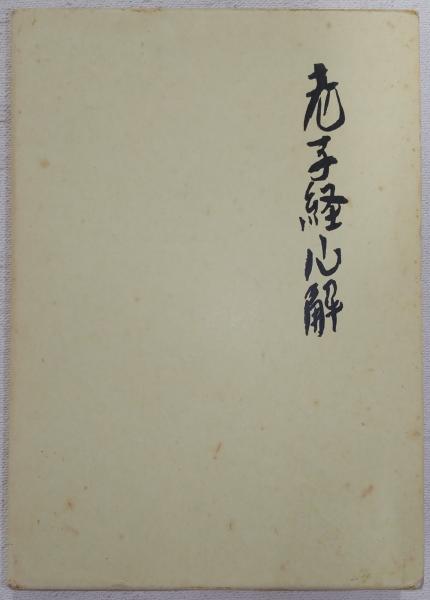 老子経心解